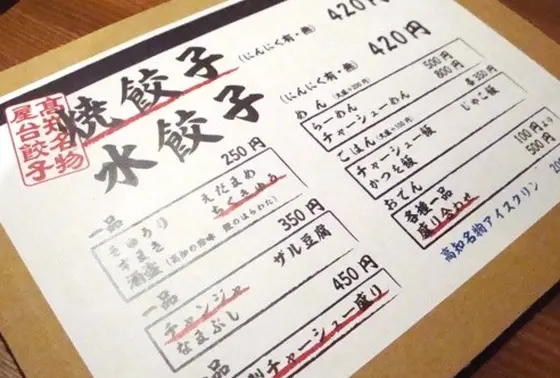 高知名物
屋台餃子
焼餃子 (にんにく有・無) 420円
水餃子 (にんにく有・無) 420円
一品 250円
きゅうり えだまめ
すまき ちくきゅう
酒盗 (高知の珍味 鰹のはらわた)
一品 350円
チャンジャ ザル豆腐
なまぶし
一品 450円
チャーシュー盛り
めん (大盛り100円)
らーめん 500円
チャーシューめん 800円
ごはん (大盛り100円) 各350円
チャーシュー飯 じゃこ飯
かつを飯
おでん
各種一品 100円より
盛り合わせ 500円
高知名物アイスクリン